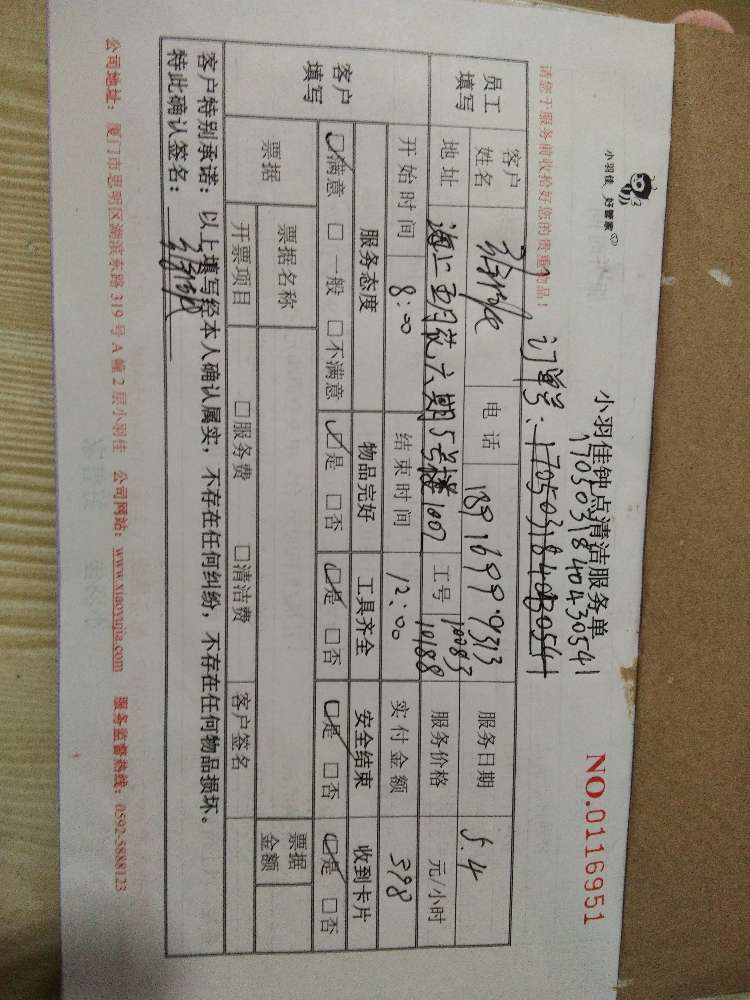 小羽佳 好管家
小羽佳钟点清洁服务单
NO.0116951
1705031840430541
请您于服务前收拾好您的贵重物品！
订单号：
员工填写
客户姓名
电话
服务日期 5.4
地址 海上五月花六期5号楼1007 工号 10083 10188 服务价格 元/小时
开始时间 8:00 结束时间 12:00 实付金额 398
客户填写
服务态度 物品完好 工具齐全 安全结束 收到卡片
☑满意 □一般 □不满意 ☑是 □否 ☑是 □否 ☑是 □否 ☑是 □否
票据 票据名称 票据金额
开票项目 □服务费 □清洁费 客户签名
客户特别承诺：以上填写经本人确认属实，不存在任何纠纷，不存在任何物品损坏。
特此确认签名：
公司地址：厦门市思明区湖滨东路319号A幢2层小羽佳 公司网站：www.xiaoyujia.com 服务监督热线：0592-5888123